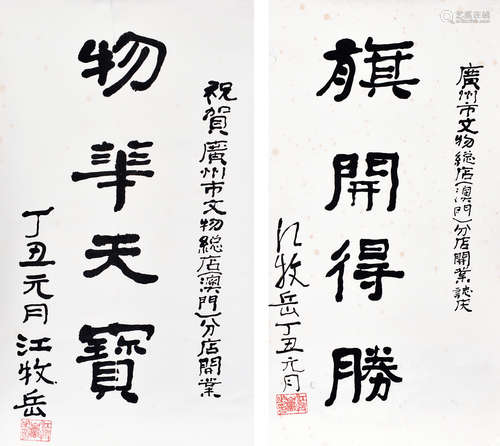 廣州市文物総店(澳門)分店開業誌庆
旗開得勝
江牧岳丁丑元月
祝賀廣州市文物総店(澳門)分店開業
物華天寶
丁丑元月江牧岳